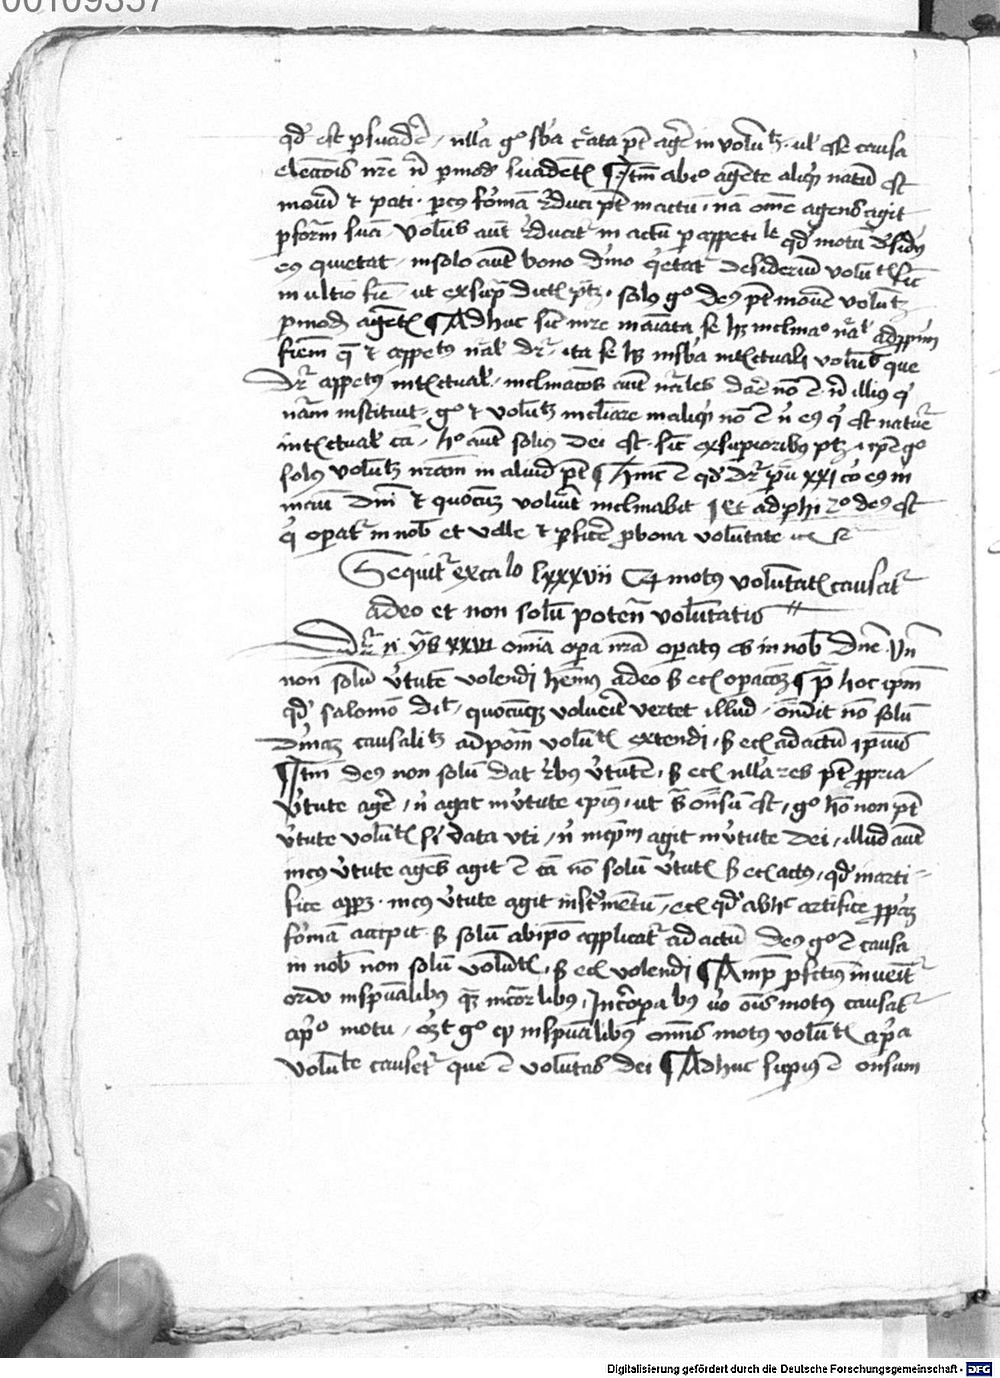 00109337
qd est psuadẽ, nlla gͦ sba cͣata pt agẽ in volũtz. ul̛ esse causa
elecc̃ois nr̃e n̄ p modũ suadent̃ ¶ Itm̃ ab eo agente aliqͥ natũ est
mouẽi et pati. p cuiꝯ formã reduci pt in actu. nã om̃e agens agit
p formã suã. Volũtas aut̃ reducit̃ in actũ p appetile qd̛ motũ desid̛ij
eiꝯ quietat, in solo aut̃ bono diuino qͥetat̃ desideriũ volũt̃ sic̃
in ultĩo fine, ut ex supͣ dict̃ ptz. solꝯ gͦ deꝯ pt mouẽ volũtz
p modũ agent̃ ¶ Adhuc sic̃ in re inaĩata se hz inclinaͦ nal̛ ad ppͥum
finem que et appetꝯ nal̛ dr̃, ita se hz in sba int̃ctuali volũtas que
dr̃ appetꝯ int̃ctual̛. inclinac̃ões aut̃ nͣales dare nõ ẽ n̄ illiꝯ qͥ
nãm instituit, gͦ et volũtz inclinare in aliqͥ nõ ẽ n̄ eiꝯ qͥ est nature
int̃ctual̛ cã, hͦ aut̃ soliꝯ dei est. sic̃ ex supioribꝯ ptz, ipe gͦ
solꝯ volũtz nr̃am in aliud pt ¶ Hinc ẽ qd̛ dr̃ pu XXI cor eiꝯ in
manu dñi et quocũqꝫ voluit inclinabit ¶ Et ad phi 2ͦ deꝯ est
qͥ opat̃ in nob̃ et velle et pficẽ p bona volũtate
Sequit̃ ex caͦlo lxxxvii qͥ motꝯ volũtatꝭ causat̃
a deo et non solũ potenͣ voluntatis
Dr̃ n̄ ys XXVI omnia opa nr̃a opatꝯ es in nob̃ dñe. vñ
non solũ v̛tutẽ volendi hẽmꝯ a deo sꝫ ecꝭ opac̃oẽ ¶ Pͣ hoc ipm̃
qd̛ salomõ dic̃, quocũqꝫ voluerit vertet illud. oñdit nõ solũ
diuinã causalitz ad potm̃ volũt̃ extendi, sꝫ ecꝭ ad actũ ipiꝯ
¶ Itm̃ deꝯ non solũ dat rebꝯ v̛tutẽ, sꝫ ecꝭ nlla res pt ppria
v̛tute agẽ, n̄ agat in v̛tute ipiꝯ, ut sͣ onsũ est, gͦ hõ non pt
v̛tute volũt̃ si data uti, n̄ inqͣtm̃ agit in v̛tute dei, illud aut̃
in cuiꝯ v̛tute agẽs agit ẽ cã nõ solũ v̛tut̃ sꝫ ecꝭ actꝯ, qd̛ in arti-
fice appꝫ. in cuiꝯ v̛tute agit instr̃mentũ, ecꝭ qd̛ ab hͦ artifice ppͥã
formã accipit sꝫ solũ ab ipo applicat̃ ad actũ deꝯ gͦ ẽ causa
in nob̃ non solũ volũt̃, sꝫ ecꝭ volendi ¶ Ampͥ pfectiꝯ inueit̃
ordo in spualibꝯ qͣꝫ in corͣlibꝯ, In corpͣlibꝯ uͦ ois motꝯ causat̃
a pͥͦ motu, oꝫt gͦ qͥ in spualibꝯ om̃is motꝯ volũt̃ a pͥa
volũtate causet̃ que ẽ volũtas dei ¶ Adhuc supiꝯ ẽ onsum
Digitalisierung gefördert durch die Deutsche Forschungsgemeinschaft - DFG